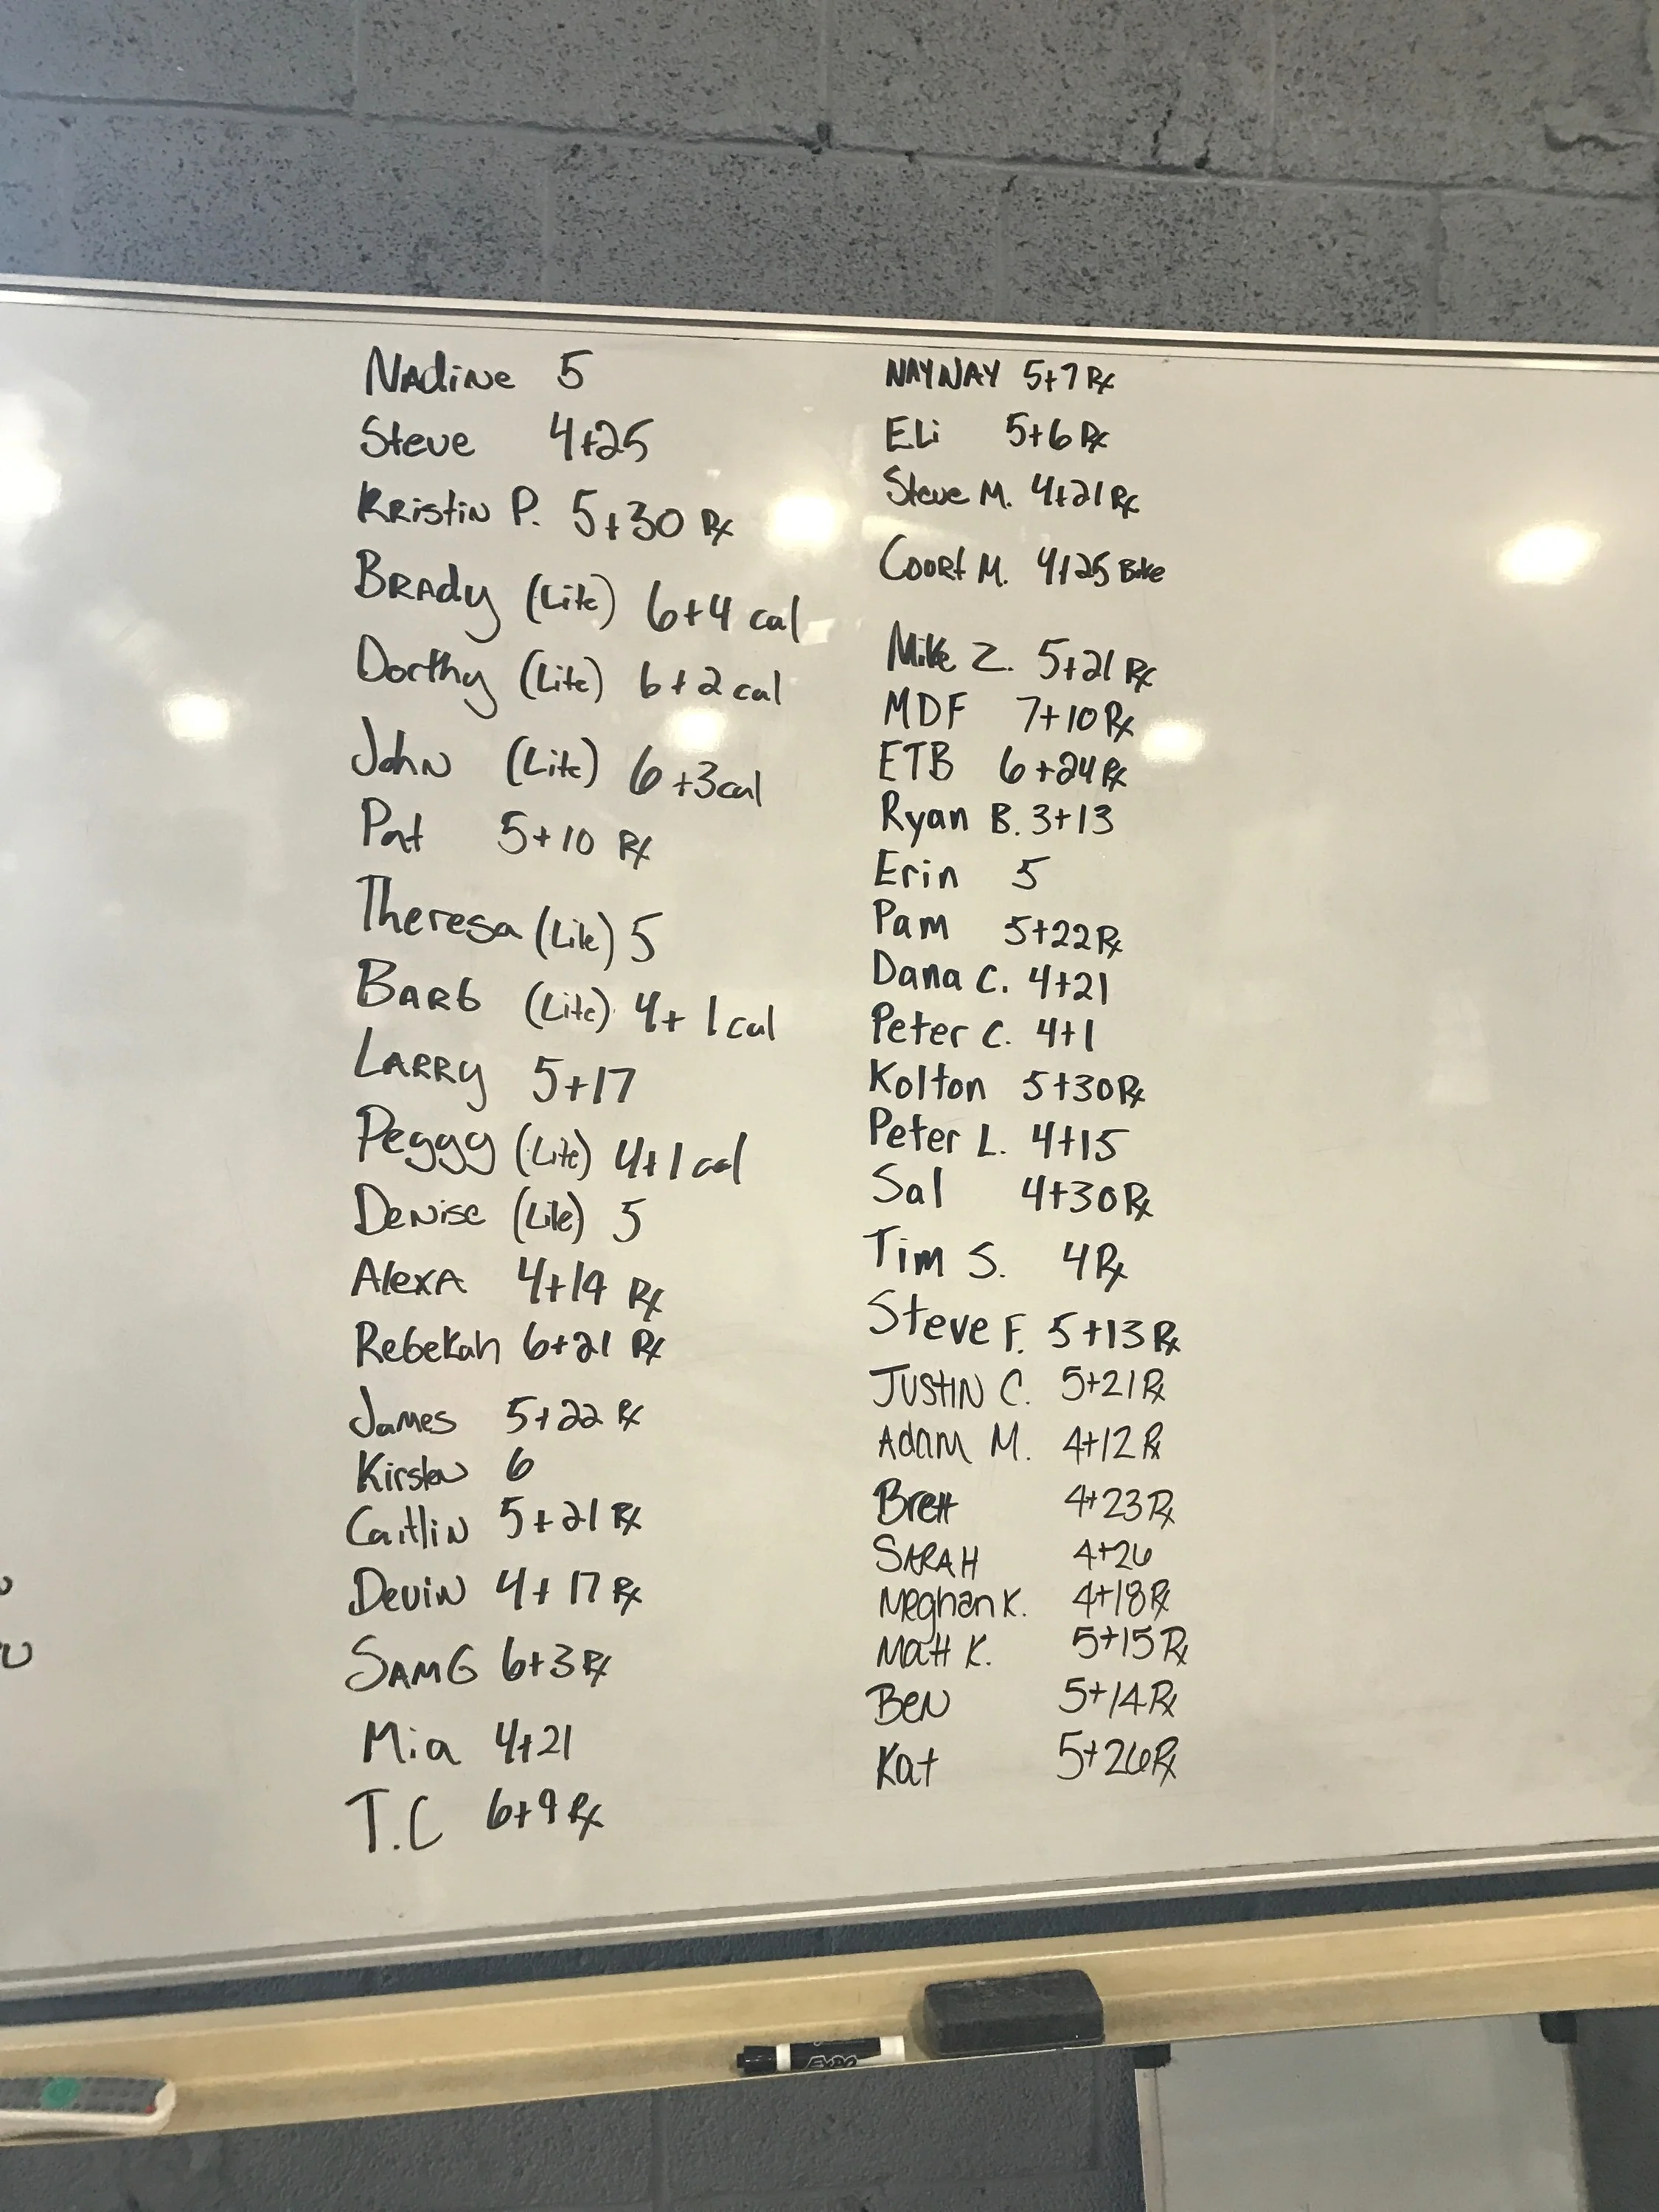 Nadine 5
Steve 4+25
Kristin P. 5+30 Rx
Brady (Lite) 6+4 cal
Dorthy (Lite) 6+2 cal
John (Lite) 6+3 cal
Pat 5+10 Rx
Theresa (Lite) 5
Barb (Lite) 4+1 cal
Larry 5+17
Peggy (Lite) 4+1 cal
Denise (Lite) 5
Alexa 4+14 Rx
Rebekah 6+21 Rx
James 5+22 Rx
Kirsten 6
Caitlin 5+21 Rx
Devin 4+17 Rx
Sam G 6+3 Rx
Mia 4+21
T.C 6+9 Rx
NAYNAY 5+7 Rx
Eli 5+6 Rx
Steve M. 4+21 Rx
Court M. 4+25 Bike
Mike Z. 5+21 Rx
MDF 7+10 Rx
ETB 6+24 Rx
Ryan B. 3+13
Erin 5
Pam 5+22 Rx
Dana C. 4+21
Peter C. 4+1
Kolton 5+30 Rx
Peter L. 4+15
Sal 4+30 Rx
Tim S. 4 Rx
Steve F. 5+13 Rx
Justin C. 5+21 Rx
Adam M. 4+12 Rx
Brett 4+23 Rx
SARAH 4+26
Meghan K. 4+18 Rx
Matt K. 5+15 Rx
Ben 5+14 Rx
Kat 5+26 Rx
EXPO